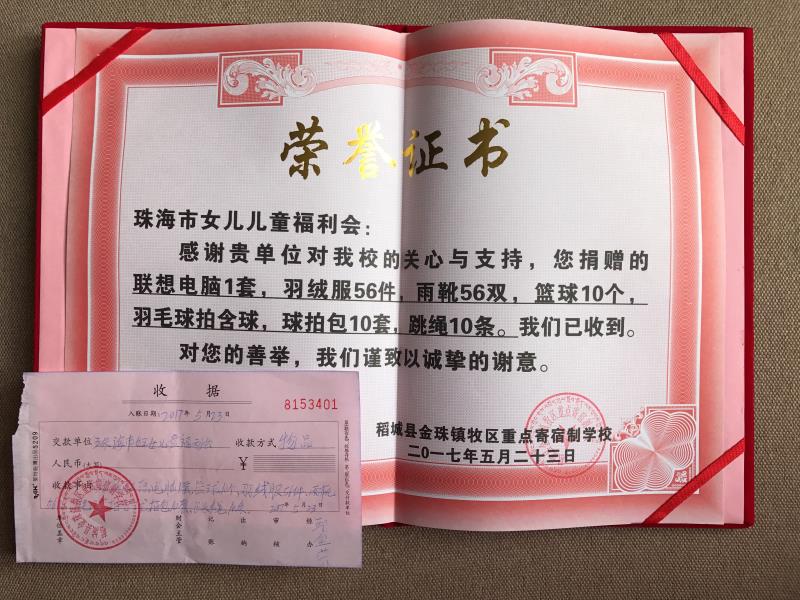 荣誉证书
珠海市女儿儿童福利会：
感谢贵单位对我校的关心与支持，您捐赠的
联想电脑1套，羽绒服56件，雨靴56双，篮球10个，
羽毛球拍含球，球拍包10套，跳绳10条。我们已收到。
对您的善举，我们谨致以诚挚的谢意。
稻城县金珠镇牧区重点寄宿制学校
二〇一七年五月二十三日
收据
8153401
入账日期：2017年5月23日
交款单位 珠海市女儿儿童福利会 收款方式 物品
人民币(大写) ¥
收款事由
2017年5月23日
财会主管 记账 出纳 审核 经办